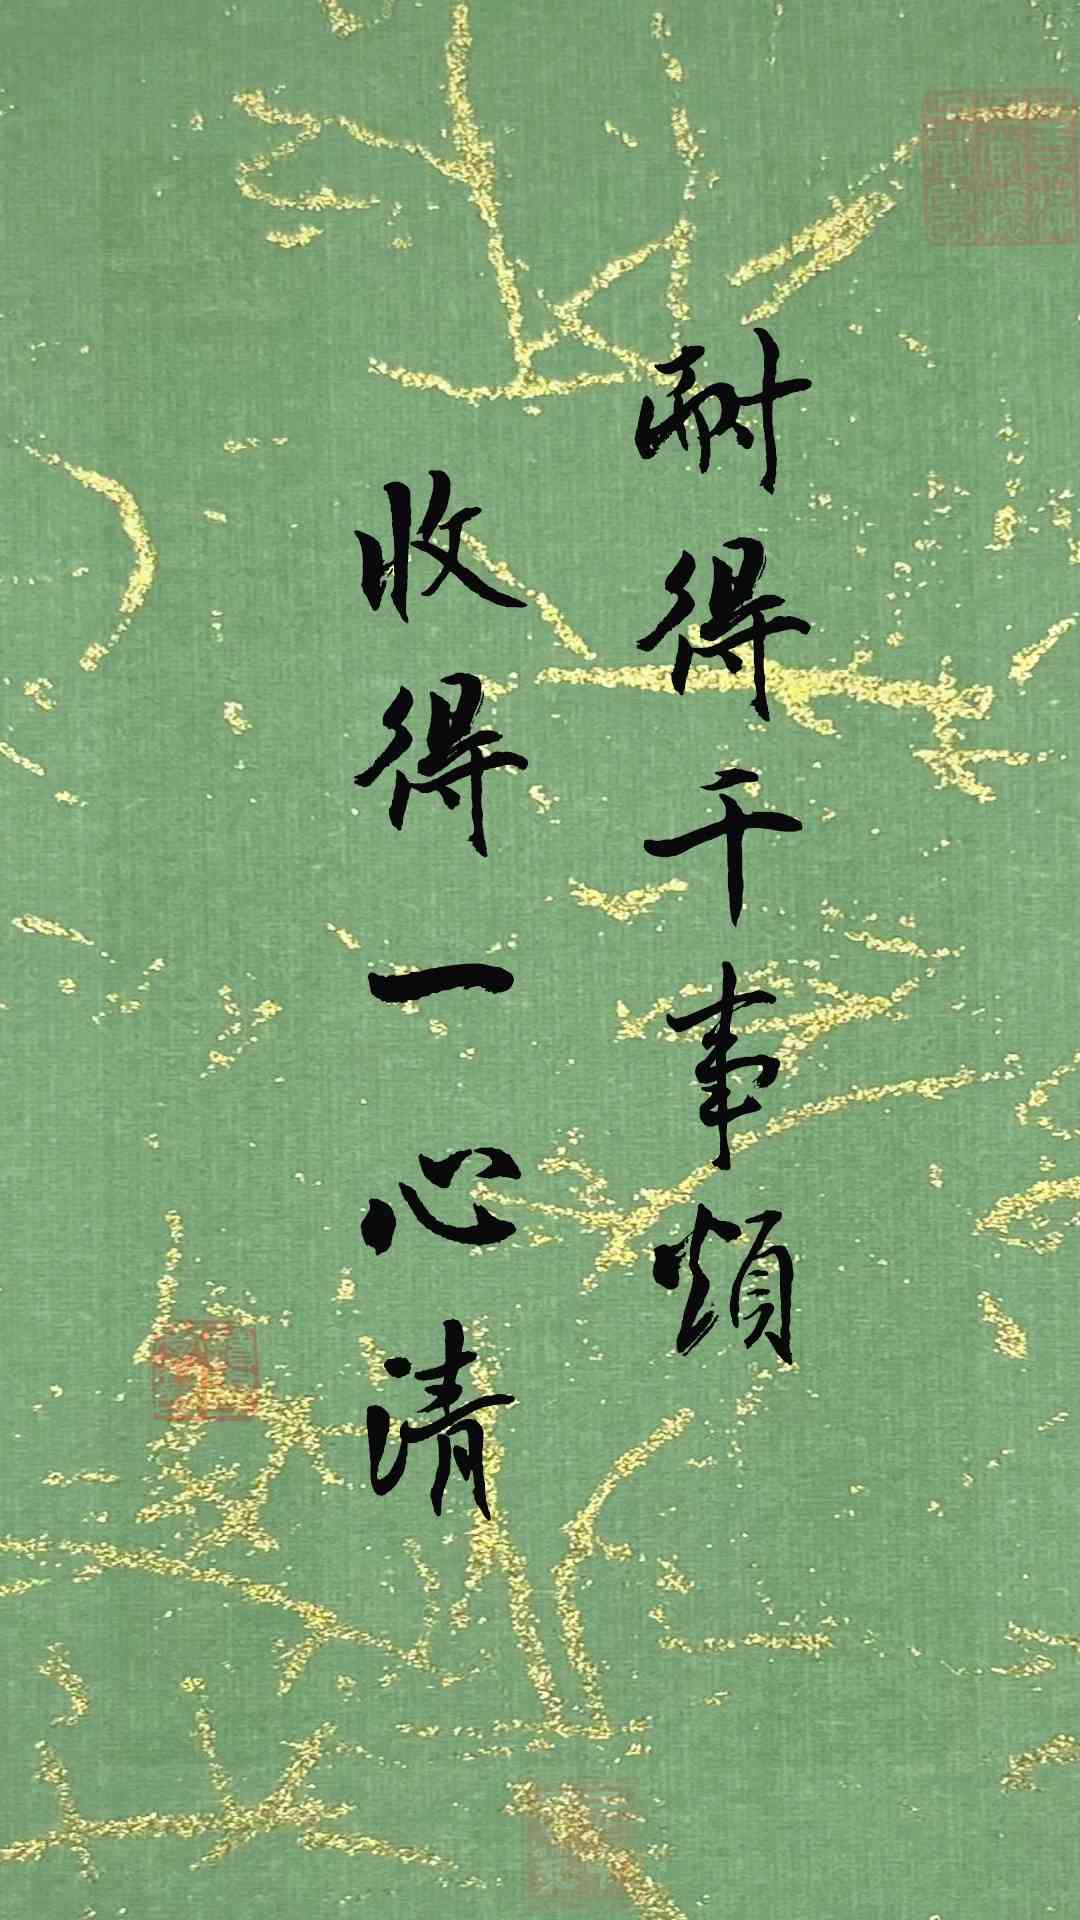 耐得千事煩
收得一心清